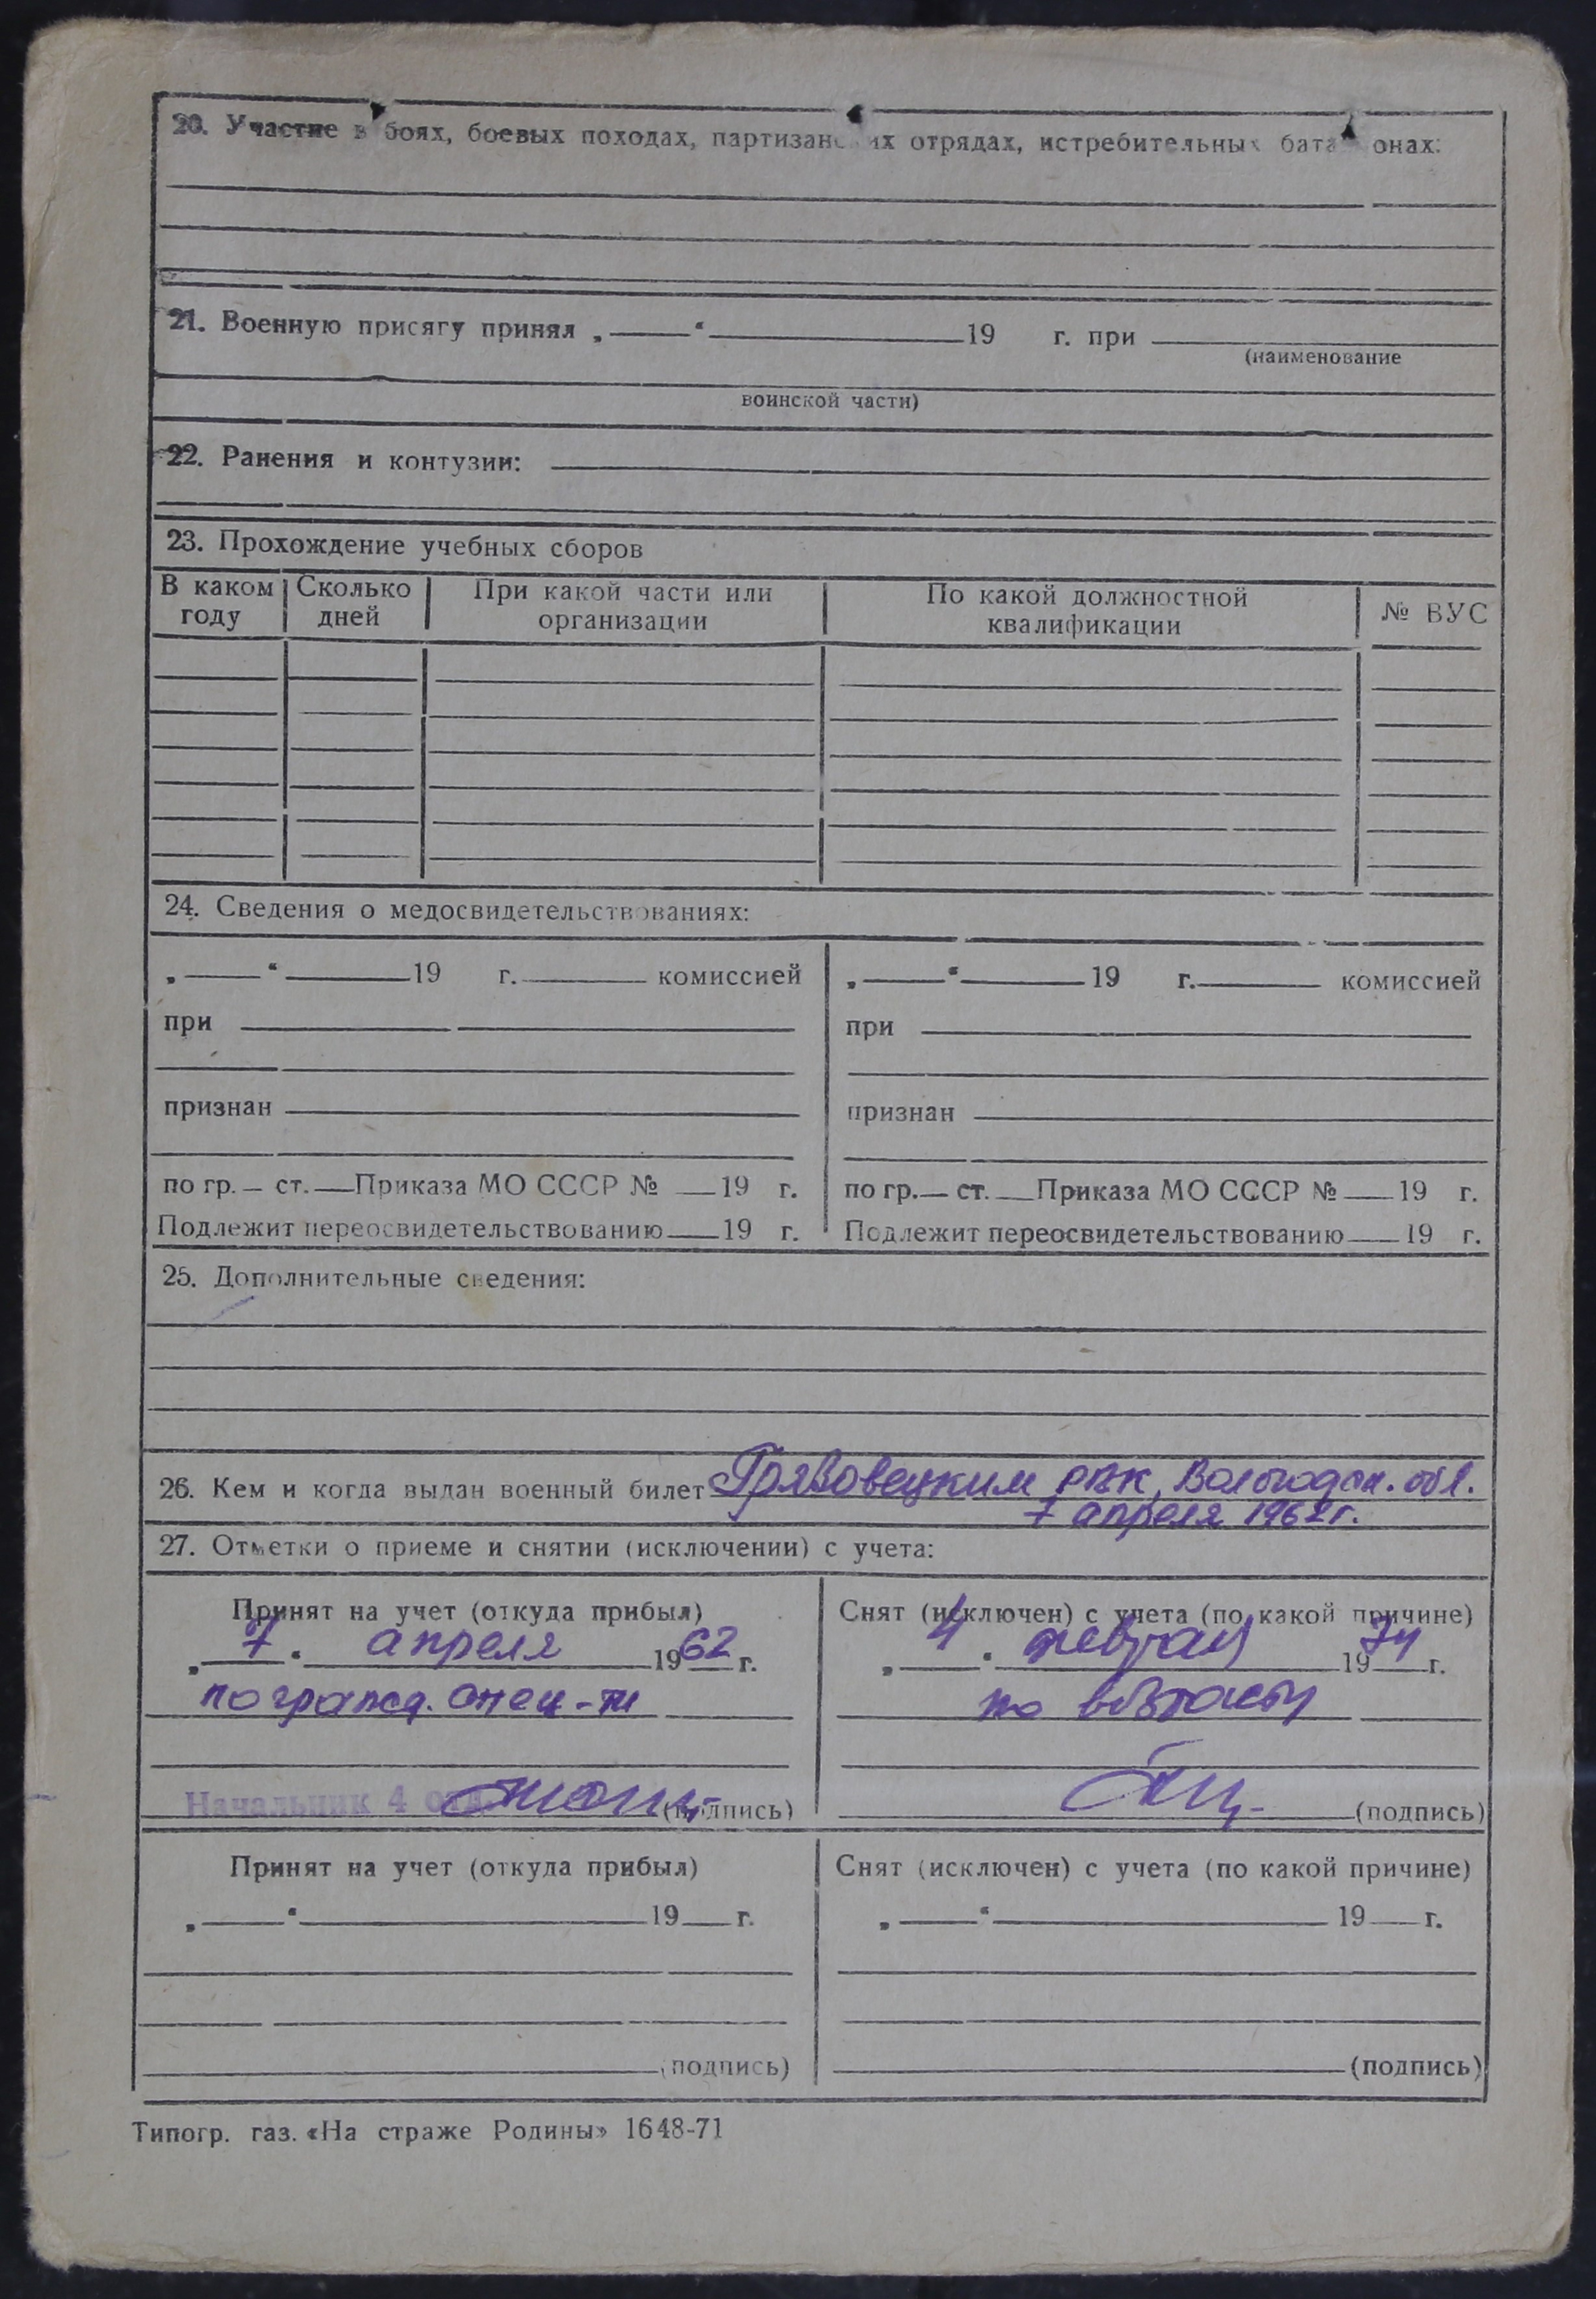 20. Участие в боях, боевых походах, партизанских отрядах, истребительных батальонах:
21. Военную присягу принял „ “ 19 г. при
(наименование
воинской части)
22. Ранения и контузии:
23. Прохождение учебных сборов
В каком году Сколько дней При какой части или организации По какой должностной квалификации № ВУС
24. Сведения о медосвидетельствованиях:
„ “ 19 г. комиссией „ “ 19 г. комиссией
при при
признан признан
по гр. ст. Приказа МО СССР № 19 г. по гр. ст. Приказа МО СССР № 19 г.
Подлежит переосвидетельствованию 19 г. Подлежит переосвидетельствованию 19 г.
25. Дополнительные сведения:
26. Кем и когда выдан военный билет Грязовецким РВК, Вологодск. обл.
7 апреля 1962 г.
27. Отметки о приеме и снятии (исключении) с учета:
Принят на учет (откуда прибыл) Снят (исключен) с учета (по какой причине)
„ 7 “ апреля 1962 г. „ 4 “ февраля 1974 г.
по гражд. спец-ти по возрасту
Начальник 4 отд. (подпись) (подпись)
Принят на учет (откуда прибыл) Снят (исключен) с учета (по какой причине)
„ “ 19 г. „ “ 19 г.
(подпись) (подпись)
Типогр. газ. «На страже Родины» 1648-71